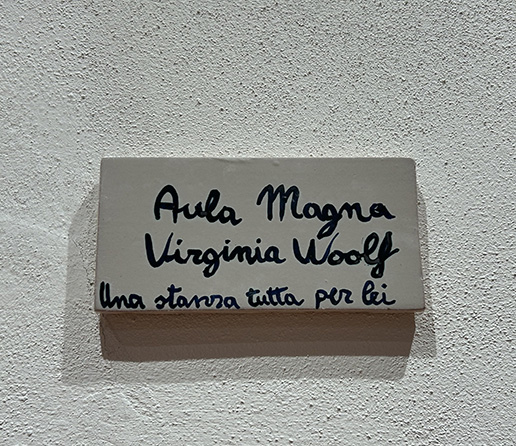 Aula Magna
Virginia Woolf
Una stanza tutta per lei